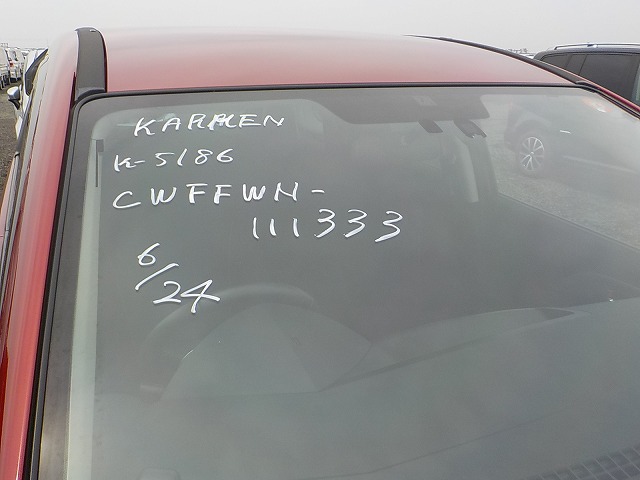 KARMEN
K-5186
CWFFWN-
111333
6/24